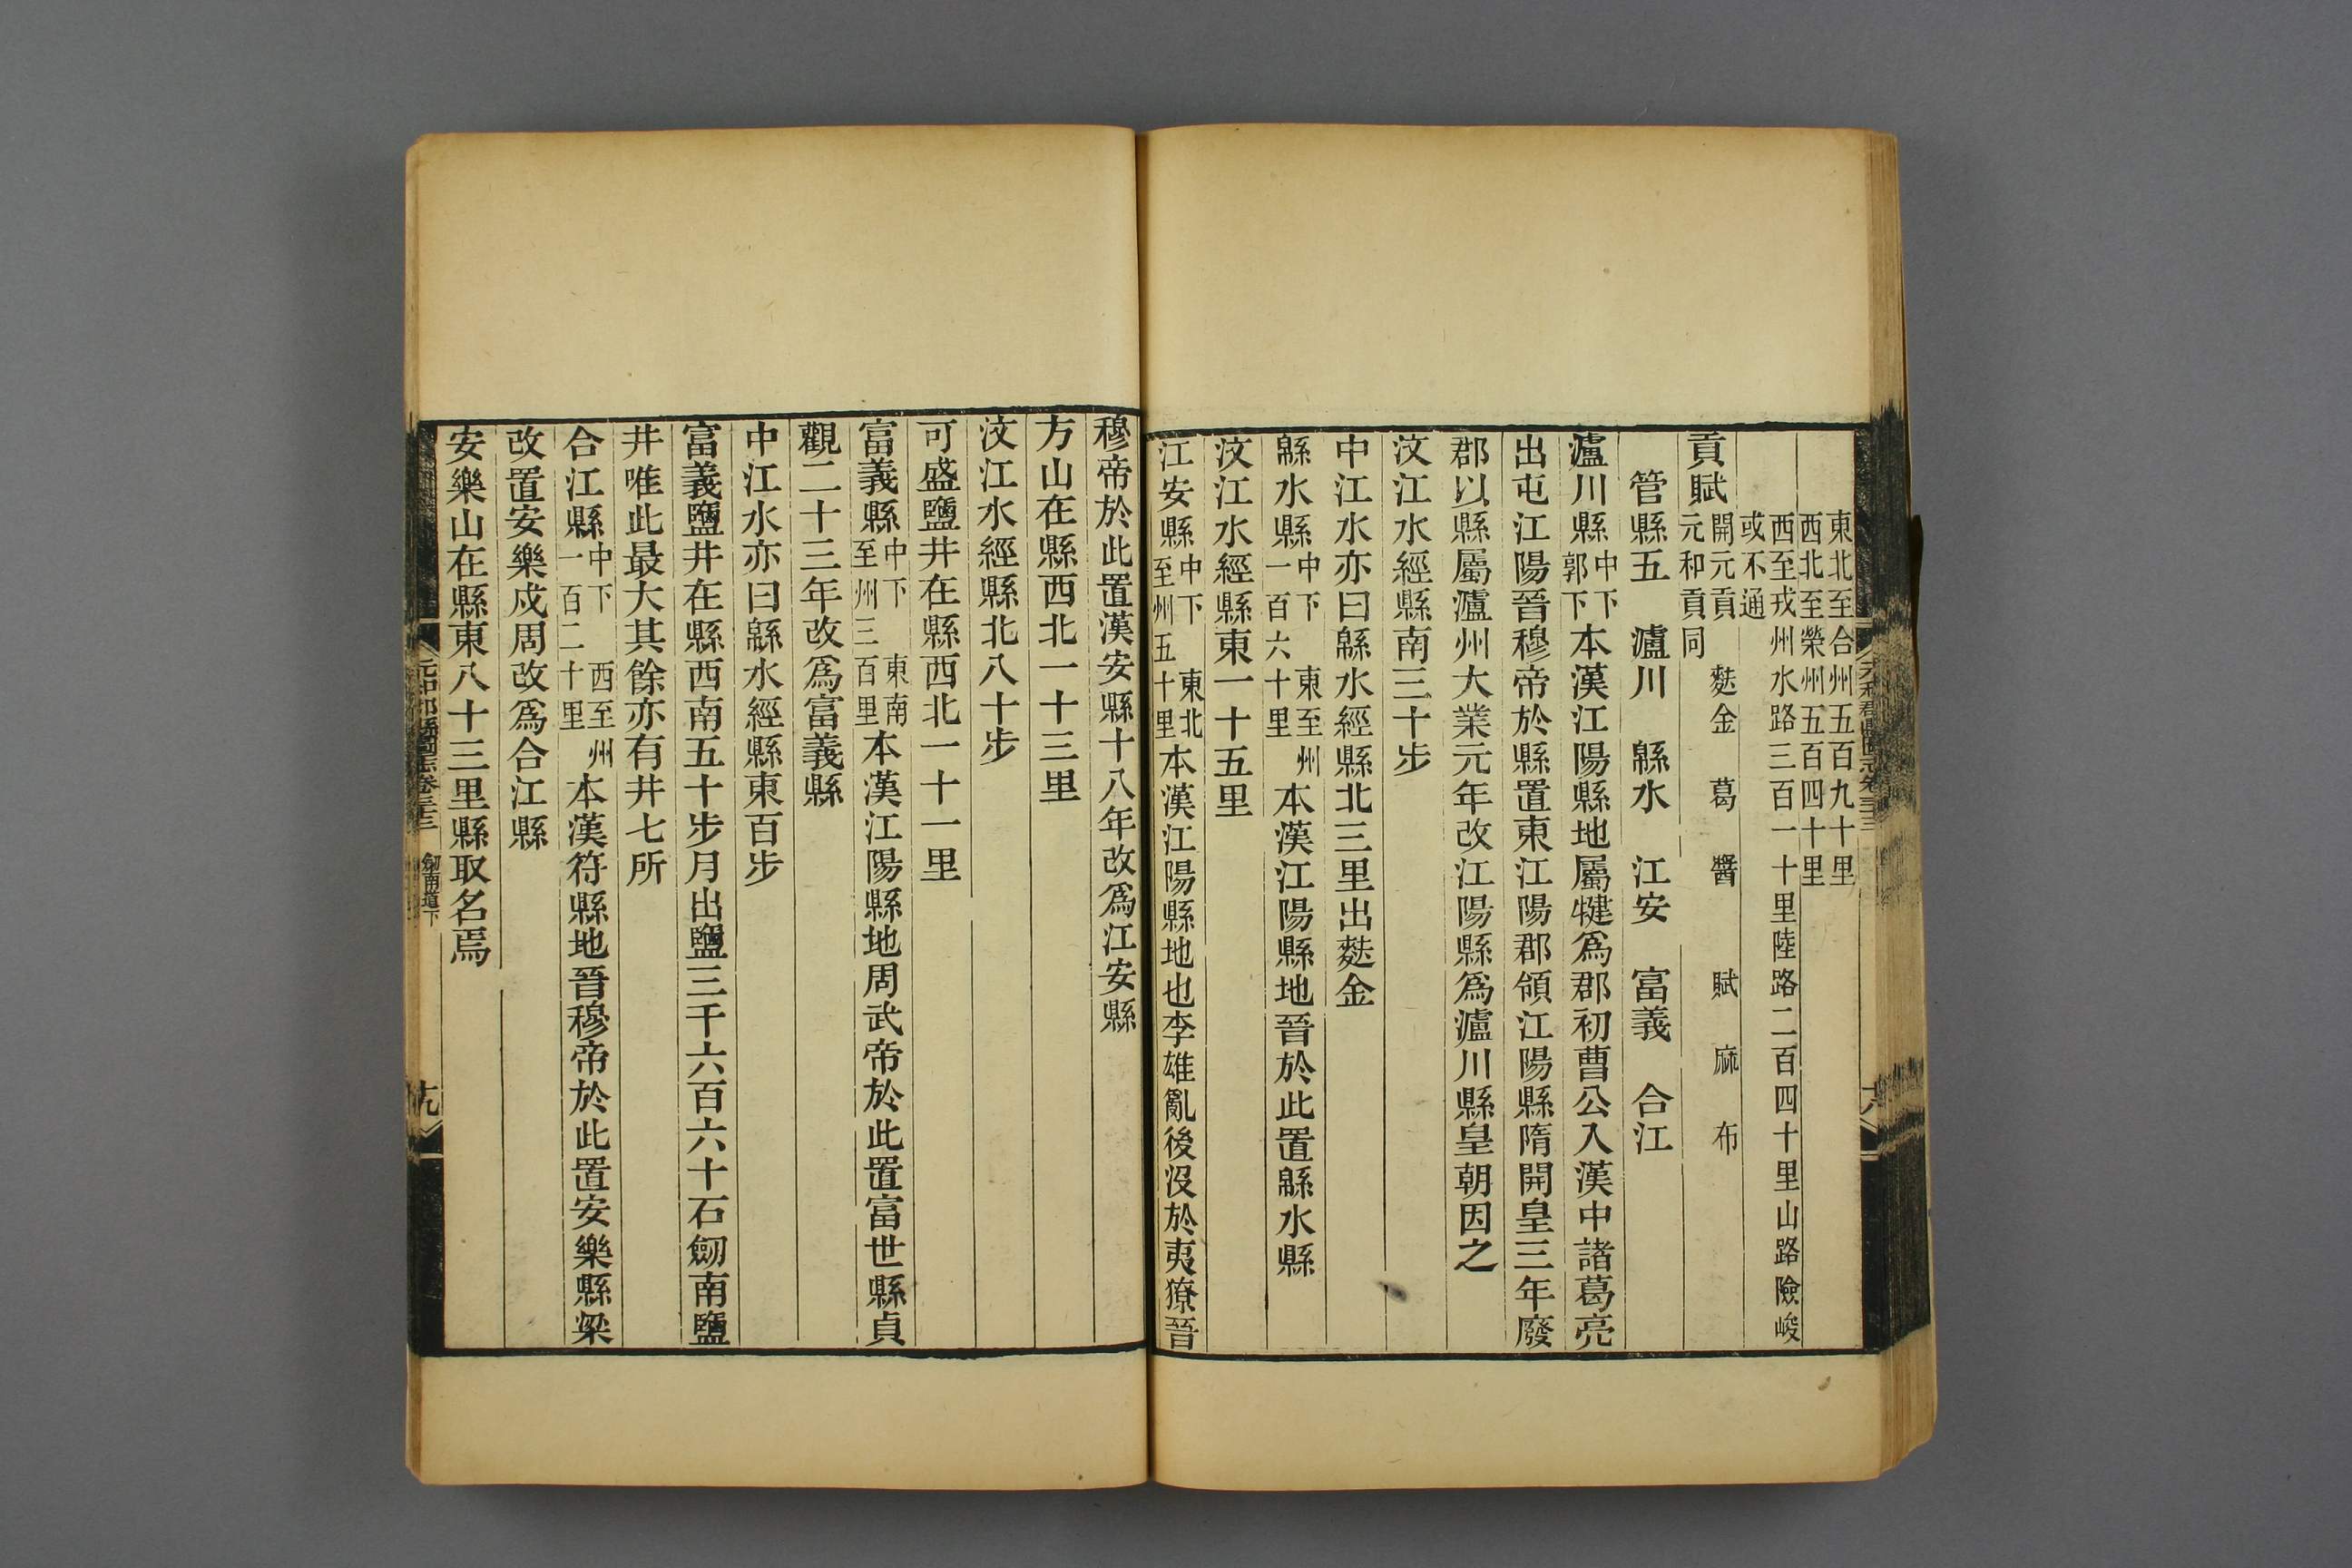 東北至合州五百九十里
西北至榮州五百四十里
西至戎州水路三百一十里陸路二百四十里山路險峻
或不通
貢賦開元貢 麩金 葛 醬 賦 麻 布
元和貢同
管縣五 瀘川 緜水 江安 富義 合江
瀘川縣中下郭下本漢江陽縣地屬犍爲郡初曹公入漢中諸葛亮
出屯江陽晉穆帝於縣置東江陽郡領江陽縣隋開皇三年廢
郡以縣屬瀘州大業元年改江陽縣爲瀘川縣皇朝因之
汶江水經縣南三十步
中江水亦曰緜水經縣北三里出麩金
緜水縣中下 東至州一百六十里本漢江陽縣地晉於此置緜水縣
汶江水經縣東一十五里
江安縣中下 東北至州五十里本漢江陽縣地也李雄亂後沒於夷獠晉
穆帝於此置漢安縣十八年改爲江安縣
方山在縣西北一十三里
汶江水經縣北八十步
可盛鹽井在縣西北一十一里
富義縣中下 東南至州三百里本漢江陽縣地周武帝於此置富世縣貞
觀二十三年改爲富義縣
中江水亦曰緜水經縣東百步
富義鹽井在縣西南五十步月出鹽三千六百六十石劒南鹽
井唯此最大其餘亦有井七所
合江縣中下 西至州一百二十里本漢符縣地晉穆帝於此置安樂縣梁
改置安樂戍周改爲合江縣
安樂山在縣東八十三里縣取名焉
元和郡縣圖志卷三十三 劒南道下 十九